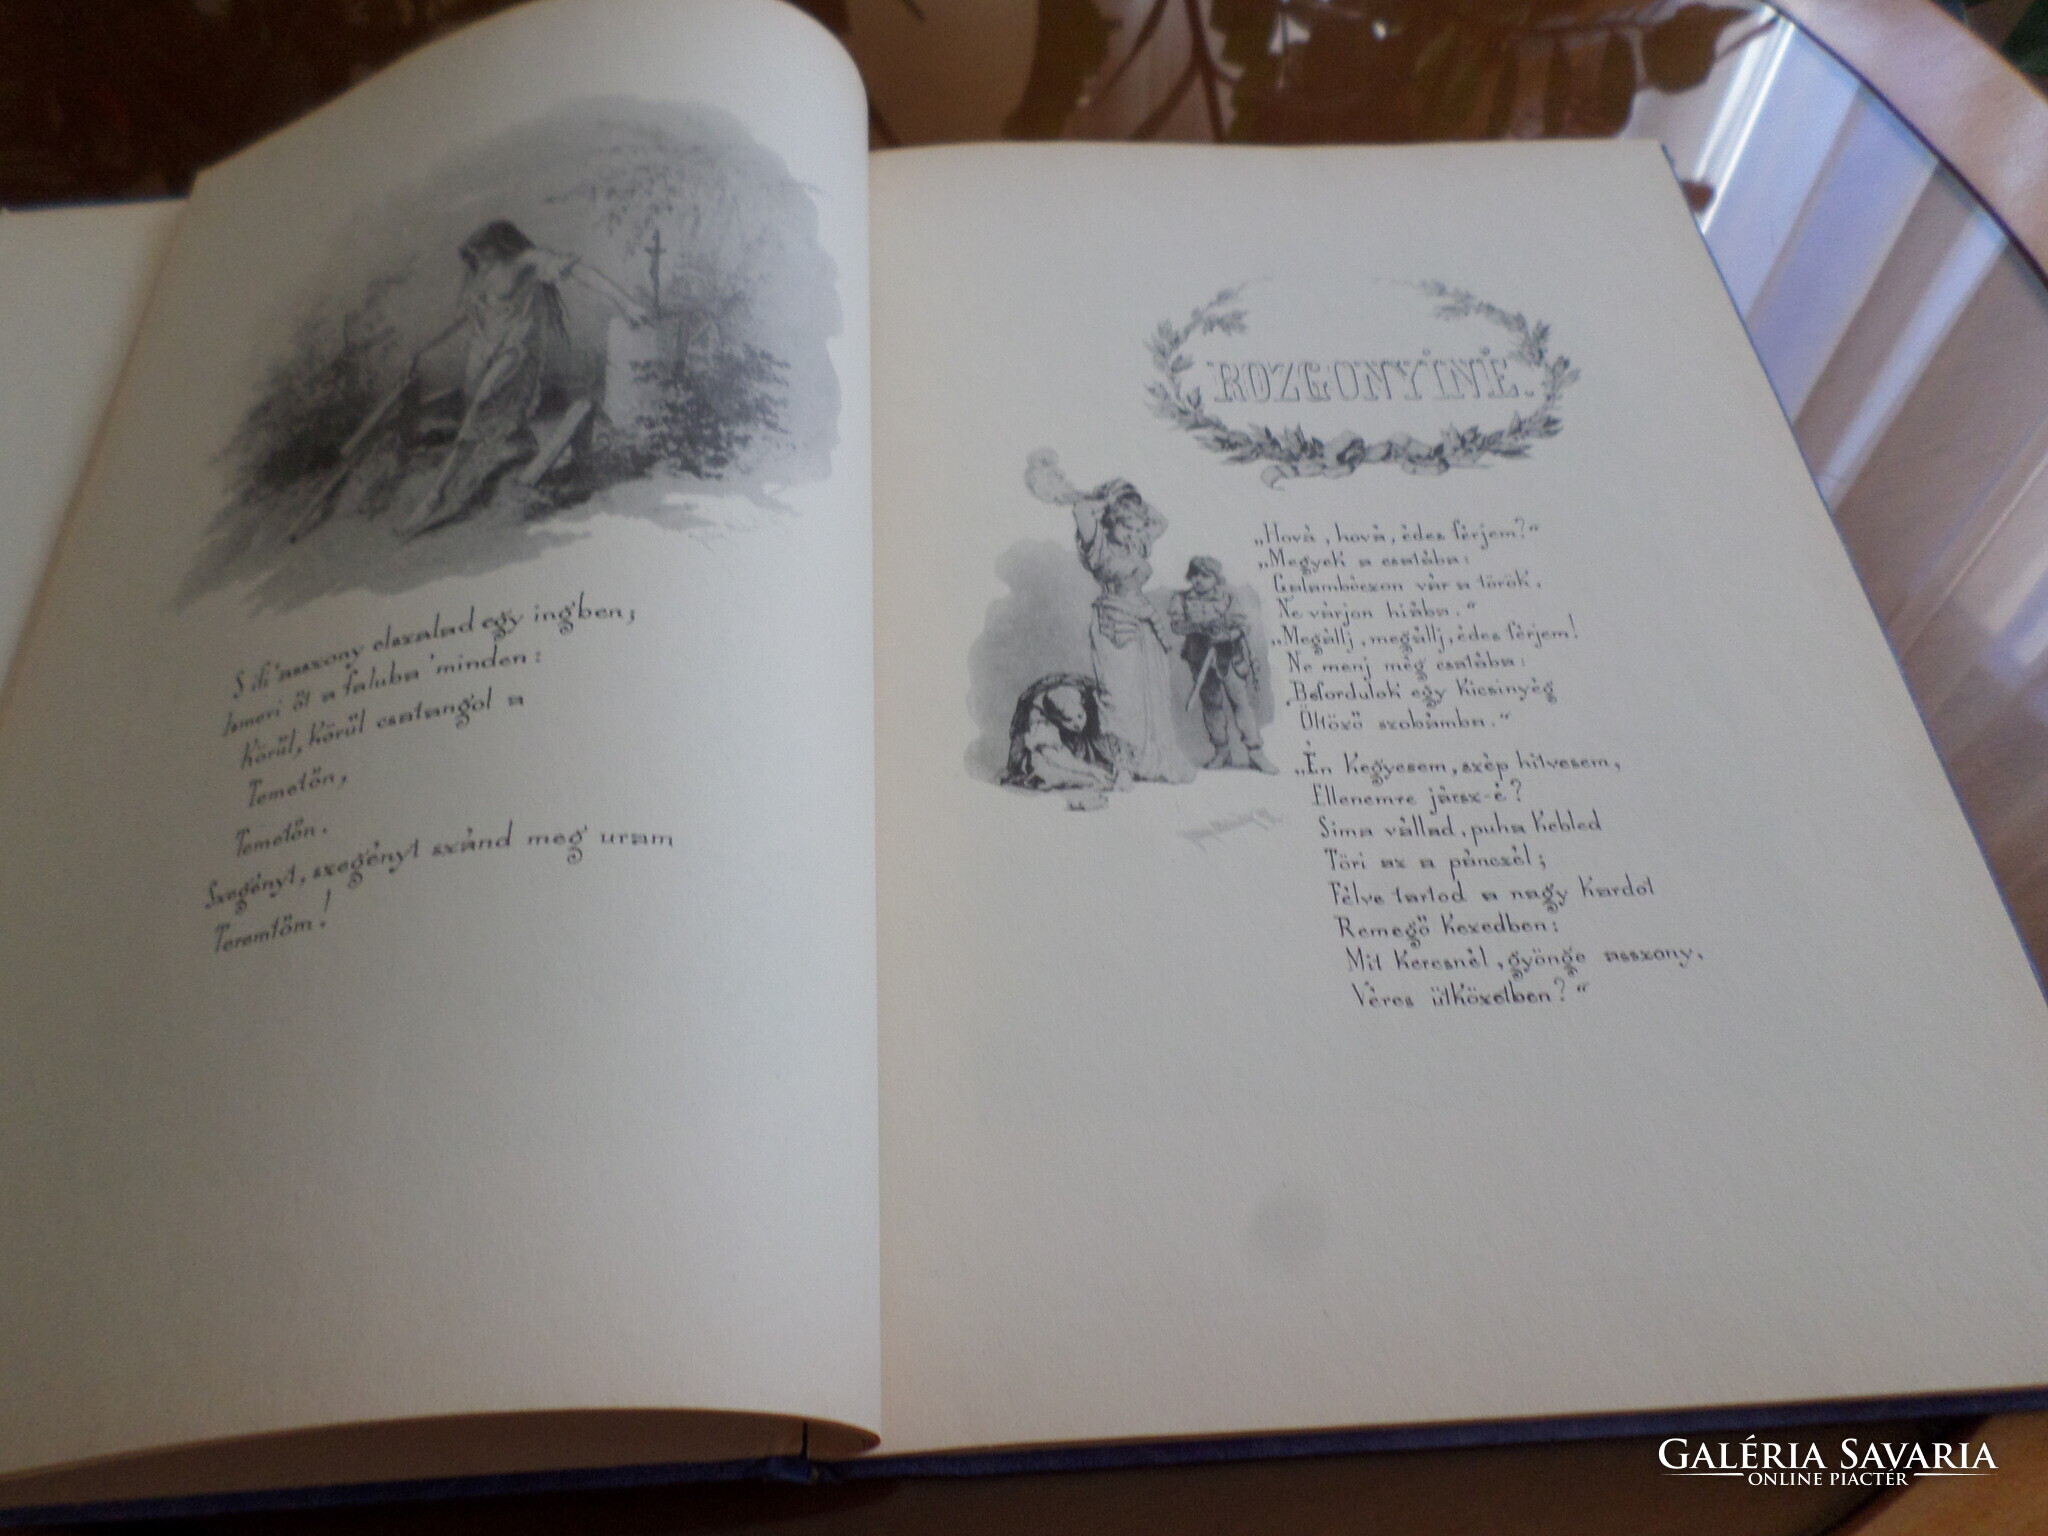 S ifi 'asszony elszalad egy ingben;
Ismeri őt a faluba 'minden:
Körűl, körűl csatangol a
Temetőn,
Temetőn.
Szegényt, szegényt szánd meg uram
Teremtőm!
ROZGONYINÉ.
„Hová, hová, édes férjem?“
„Megyek a csatába:
Galambóczon vár a török,
Ne várjon hiába.“
„Megállj, megállj, édes férjem!
Ne menj még csatába:
Befordulok egy kicsinyég
Öltöző szobámba.“
„Én kegyesem, szép hitvesem,
Ellenemre jársz-é?
Sima vállad, puha kebled
Töri az a pánczél;
Félve tartod a nagy kardot
Remegő kezedben:
Mit keresnél, gyönge asszony,
Véres ütközetben?“
GALÉRIA SAVARIA
ONLINE PIACTÉR